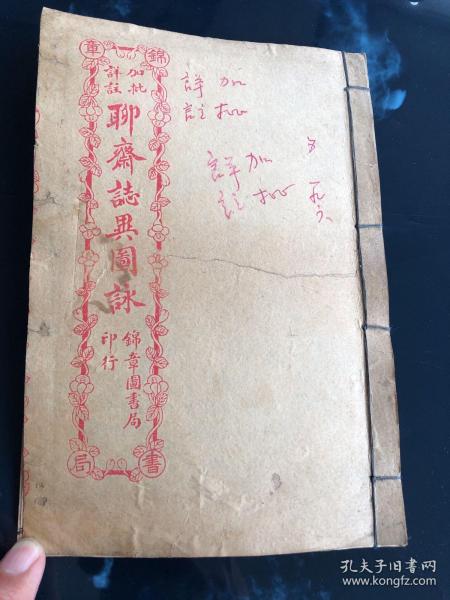 錦章
書局
加批
詳註
聊齋誌異圖詠
錦章圖書局
印行
加批
詳註
加批
詳註
孔夫子旧书网
www.kongfz.com